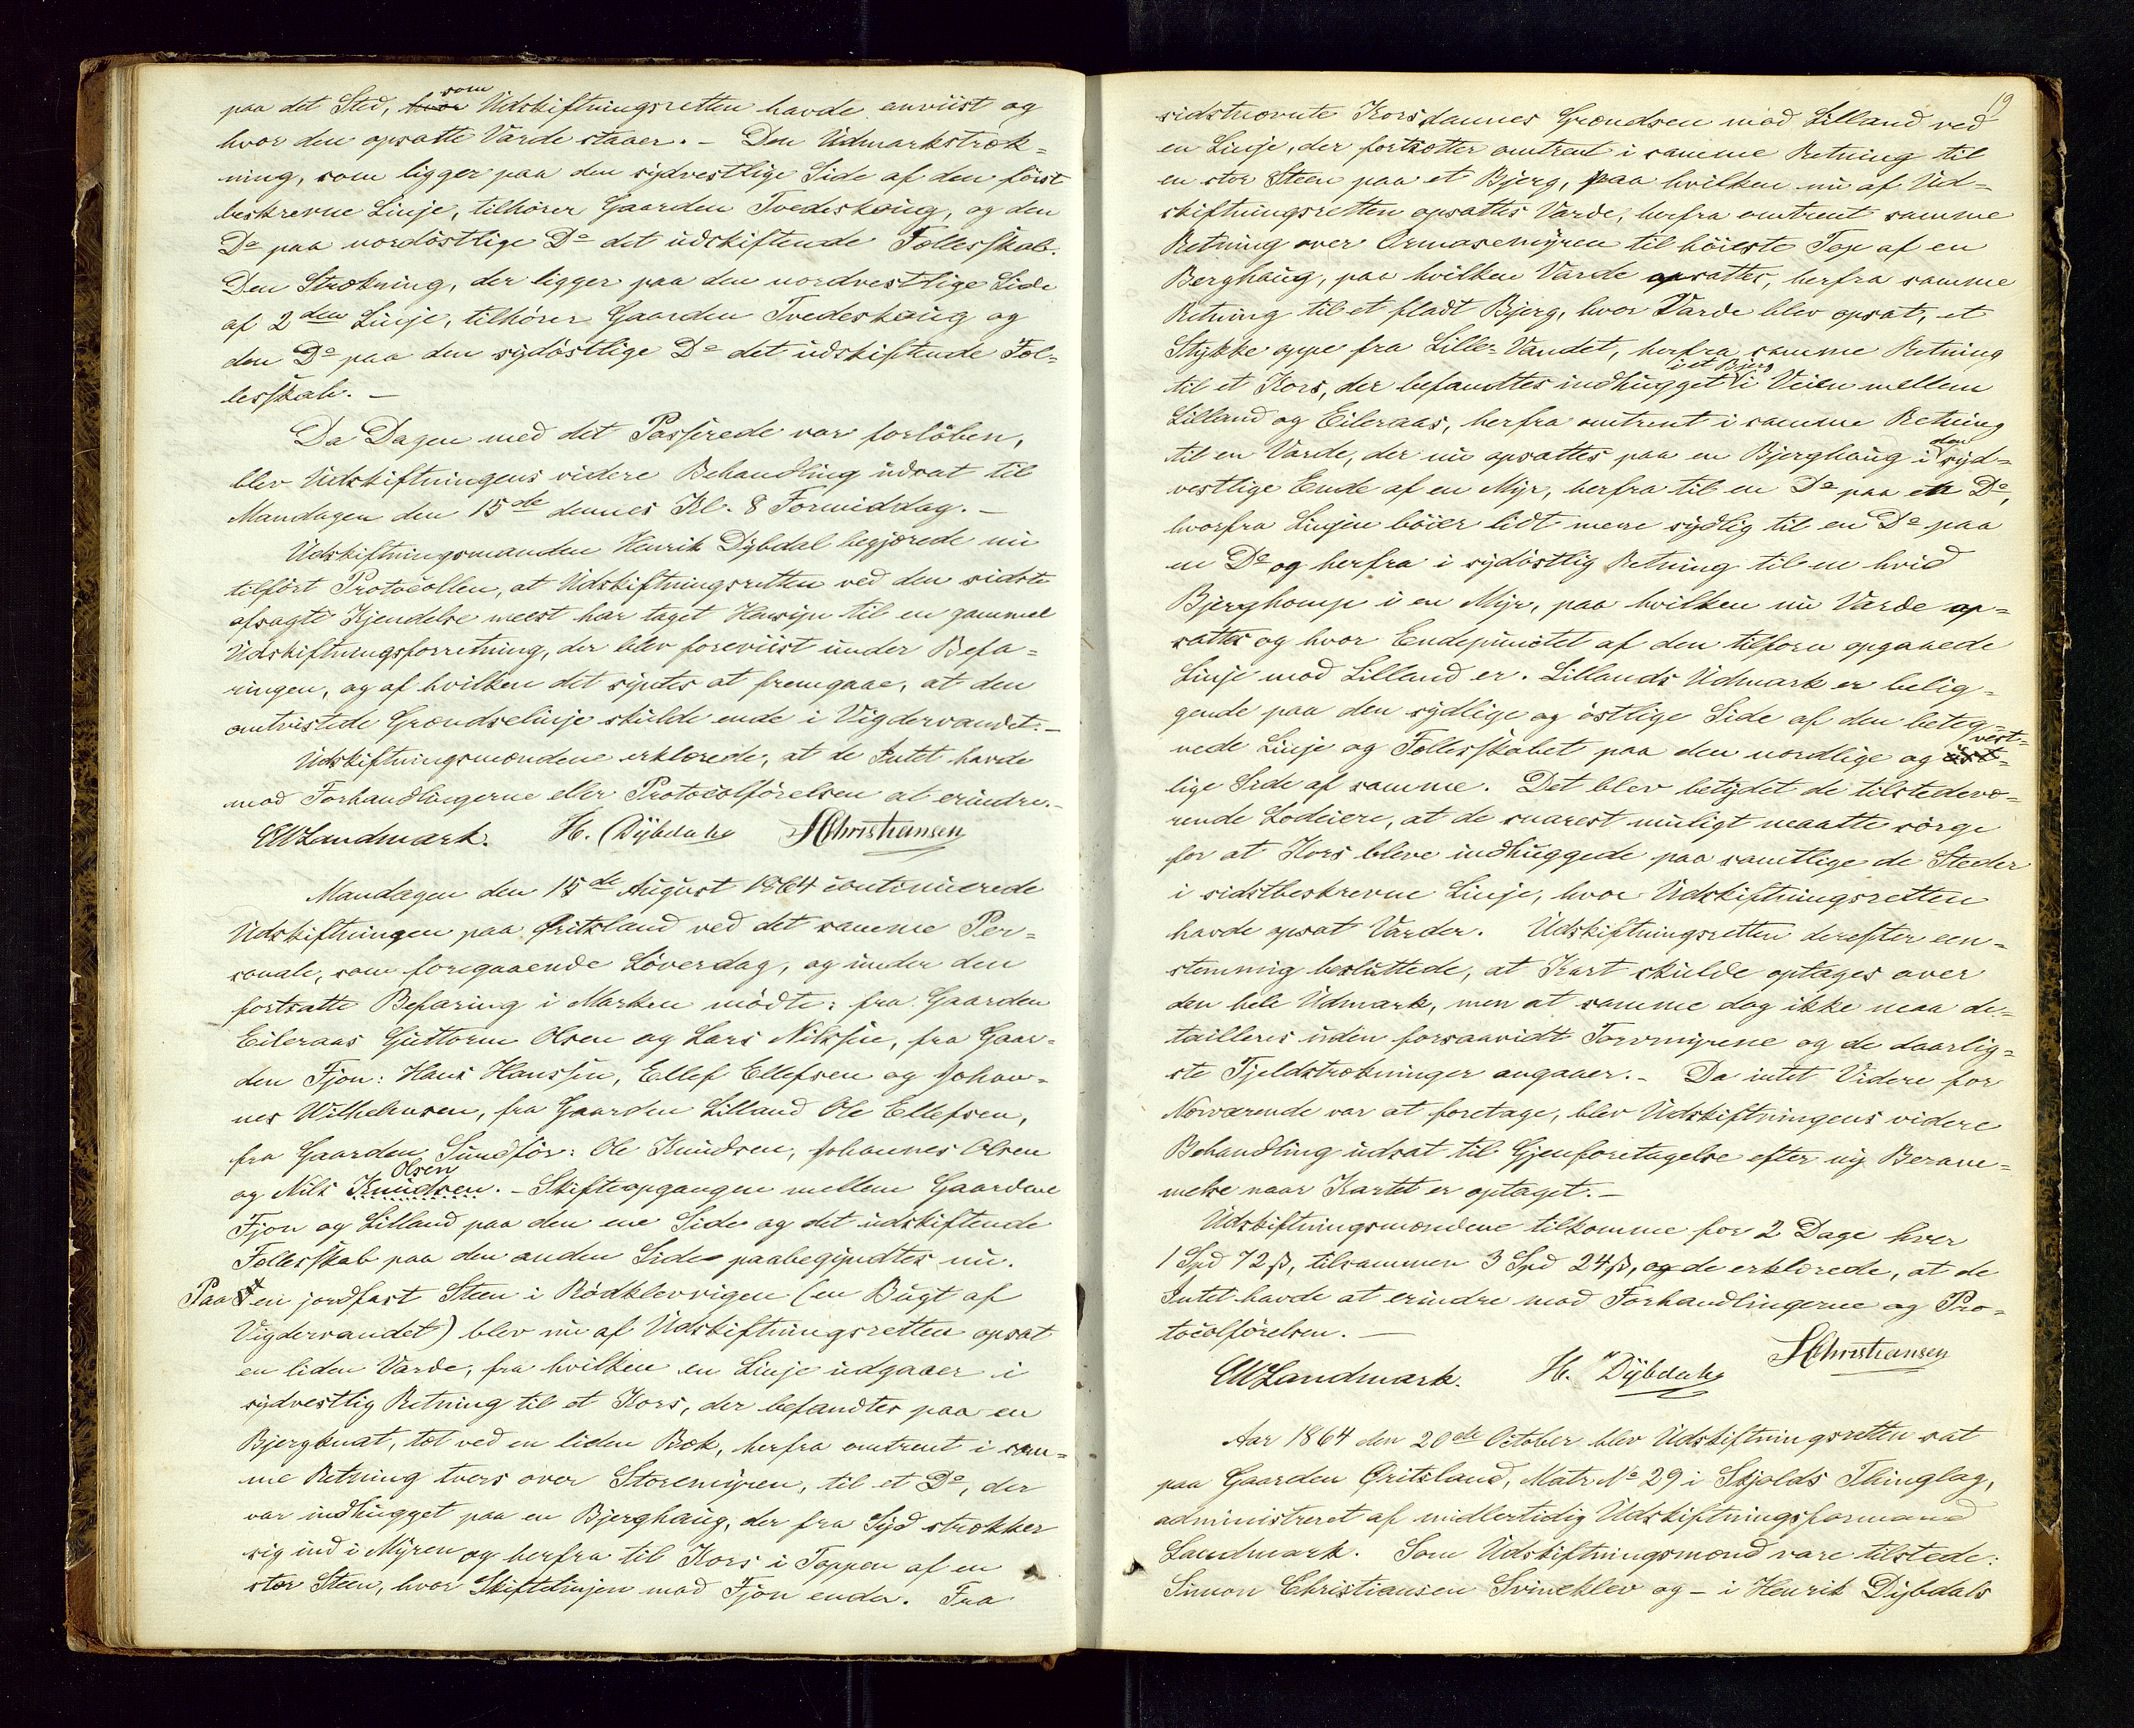 paa det Sted, hvor som Udskiftningsretten havde anviist og
hvor den opsatte Varde staaer. – Den Udmarkstræk-
ning, som ligger paa den sydvestlige Side af den först
beskrevne Linje, tilhörer Gaarden Tvedeskoug, og den
Do paa nordöstlige Do det udskiftende Fællesskab.
Den Strækning, der ligger paa den nordvestlige Side
af 2den Linje, tilhörer Gaarden Tvedeskoug og
den Do paa den sydöstlige Do det udskiftende Fæl-
lesskab. –
Da Dagen med det Passerede var forlöben,
blev Udskiftningens videre Behandling udsat til
Mandagen den 15de dennes Kl. 8 Formiddag. –
Udskiftningsmanden Henrik Dybdal begjærede nu
tilfört Protocollen, at Udskiftningsretten ved den sidste
afsagte Kjendelse meest har taget Hensyn til en gammel
Udskiftningsforretning, der blev foreviist under Befa-
ringen, og af hvilken det syntes at fremgaae, at den
omtvistede Grændselinje skulde ende i Vigdervandet. –
Udskiftningsmændene erklærede, at de Intet havde
mod Forhandlingerne eller Protocolförelsen at erindre. –
CWLandmark. H. Dybdahl SChristiansen
Mandagen den 15de August 1864 continuerede
Udskiftningen paa Qritsland ved det samme Per-
sonale, som foregaaende Löverdag, og under den
fortsatte Befaring i Marken mödte: fra Gaarden
Eileraas Guttorm Olsen og Lars Nilssen, fra Gaar-
den Fjon: Hans Hanssen, Ellef Ellefsen og Johan-
nes Wilhelmsen, fra Gaarden Lilland Ole Ellefsen,
fra Gaarden Sundför: Ole Knudsen, Johannes Olsen
og Nils Knudsen Olsen. – Skifteopgangen mellem Gaardene
Fjon og Lilland paa den ene Side og det udskiftende
Fællesskab paa den anden Side paabegyndtes nu.
Paa en jordfast Steen i Rödklevvigen (en Bugt af
Vigdervandet) blev nu af Udskiftningsretten opsat
en liden Varde, fra hvilken en Linje udgaaer i
sydvestlig Retning til et Kors, der befandtes paa en
Bjergknat, tæt ved en liden Bæk, herfra omtrent i sam-
me Retning tvers over Storemyren, til et Do, der
var indhugget paa en Bjerghaug, der fra Syd strækker
sig ind i Myren og herfra til Kors i Toppen af en
stor Steen, hvor Skiftelinjen mod Fjon ender. Fra
19
sidstnævnte Kors dannes Grændsen mod Lilland ved
en Linje, der fortsætter omtrent i samme Retning til
en stor Steen paa et Bjerg, paa hvilken nu af Ud-
skiftningsretten opsattes Varde, herfra omtrent samme
Retning over Ormasemyren til höieste Top af en
Berghaug, paa hvilken Varde opsattes, herfra samme
Retning til et fladt Bjerg, hvor Varde blev opsat, et
Stykke oppe fra Lille-Vandet, herfra samme Retning
til et Kors, der befandtes indhugget i et Bjerg i Veien mellem
Lilland og Eileraas, herfra omtrent i samme Retning
til en Varde, der nu opsattes paa en Bjerghaug i den syd-
vestlige Ende af en Myr, herfra til en Do paa en Do,
hvorfra Linjen böier lidt mere sydlig til en Do paa
en Do og herfra i sydöstlig Retning til en hvid
Bjerghomp i en Myr, paa hvilken nu Varde op-
sattes og hvor Endepunctet af den tilforn opgaaede
Linje mod Lilland er. Lillands Udmark er belig-
gende paa den sydlige og östlige Side af den beteg-
nede Linje og Fællesskabet paa den nordlige og öst- vest-
lige Side af samme. Det blev betydet de tilstedevæ-
rende Lodeiere, at de snarest muligt maatte sörge
for at Kors bleve indhuggede paa samtlige de Steder
i sidstbeskrevne Linje, hvor Udskiftningsretten
havde opsat Varder. Udskiftningsretten derefter een-
stemmig besluttede, at Kart skulde optages over
den hele Udmark, men at samme dog ikke maa de-
tailleres uden forsaavidt Torvmyrene og de daarlig-
ste Fjeldstrækninger angaaer. – Da intet Videre for
Nærværende var at foretage, blev Udskiftningens videre
Behandling udsat til Gjenforetagelse efter ny Beram-
melse naar Kartet er optaget. –
Udskiftningsmændene tilkomme for 2 Dage hver
1 Spd 72 ß, tilsammen 3 Spd 24 ß, og de erklærede, at de
Intet havde at erindre mod Forhandlingerne og Pro-
tocolförelsen. –
CWLandmark. H. Dybdahl SChristiansen
Aar 1864 den 20de October blev Udskiftningsretten sat
paa Gaarden Qritsland, Matr No 29 i Skjolds Thinglag,
administreret af midlertidig Udskiftningsformand
Landmark. Som Udskiftningsmænd vare tilstede:
Simon Christiansen Svineklev og – i Henrik Dybdals